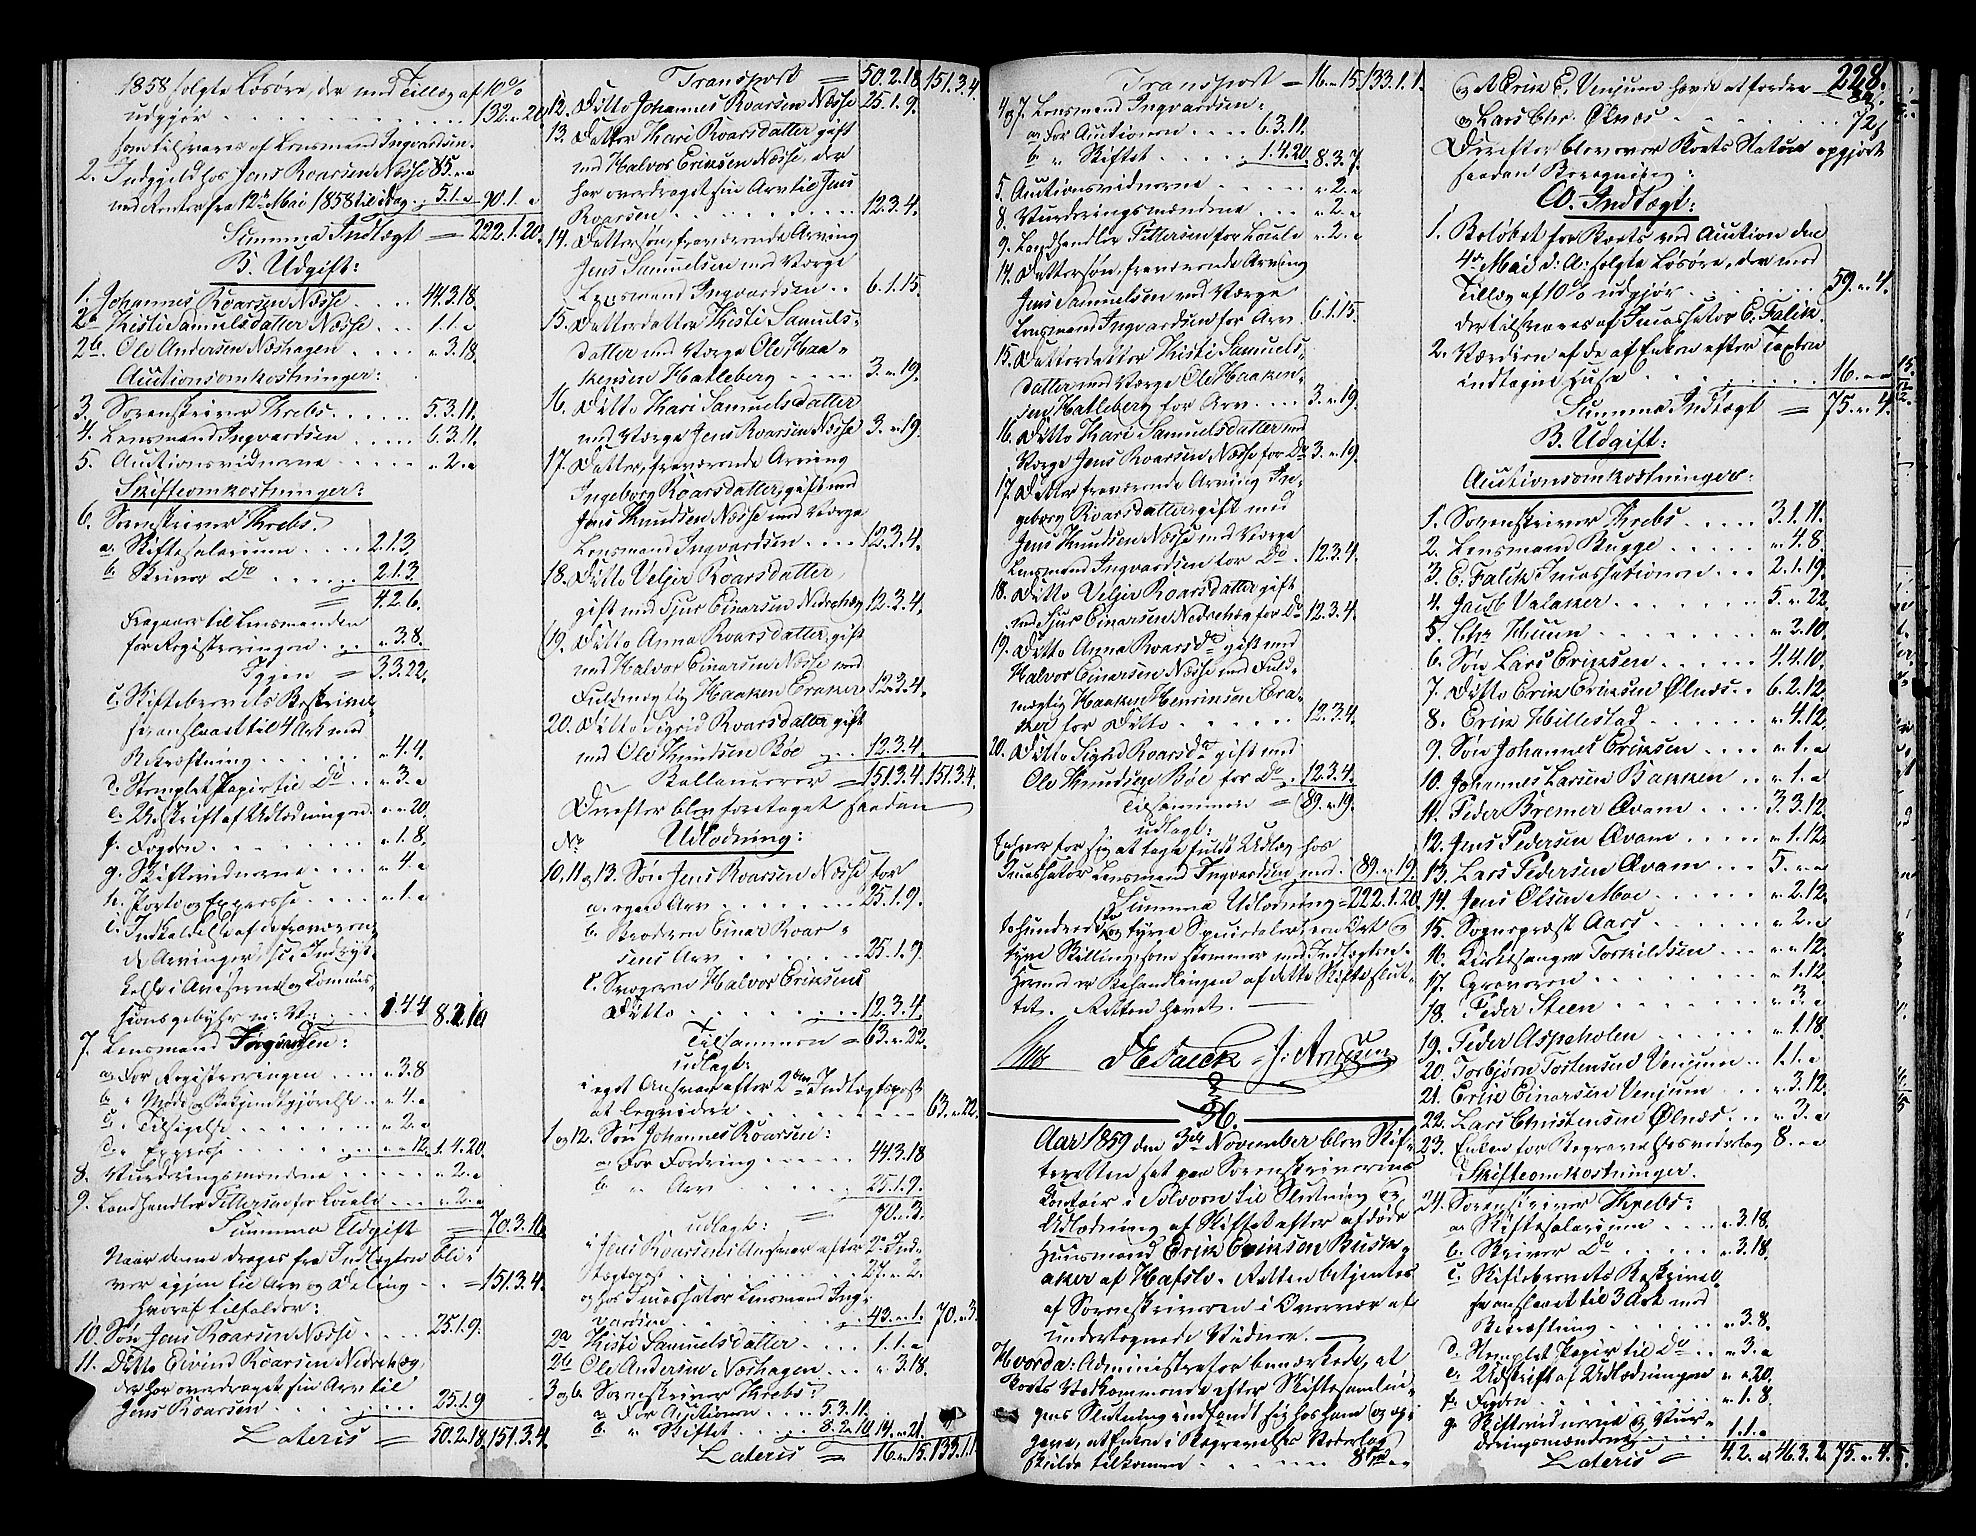 1858 solgte Løsøre, der med Tillæg af 10%
udgjør . . . . 132. " 20.
som tilsvares af Lensmand Ingvardsen.
2. Indgjeld hos Jens Roarsen Næsse 85. " "
med Renter fra 12te Mai 1858 til idag . . 5.1. " 90.1. "
Summa Indtægt = 222.1.20.
B. Udgift:
1. Johannes Roarsen Næsse . . . . 44.3.18.
2a Kisti Samuelsdatter Næsse . . . 1.1. "
2b. Ole Andersen Næshagen . . . . " 3.18.
Auctionsomkostninger:
3. Sorenskriver Krebs . . . . . 5.3.11.
4. Lensmand Ingvardsen . . . . . 6.3.11.
5. Auctionsvidnerne . . . . . " 2. "
Skifteomkostninger:
6. Sorenskriver Krebs.
a. Skiftesalarium . . . . 2.1.3.
b. Skriver Do . . . . . . 2.1.3.
= 4.2.6.
Fragaaer til Lensmanden
for Registreringen . . . " 3.8.
Igjen = 3.3.22.
c. Skiftebrevets Beskrivel-
se anslaaet til 4 Ark med
Bekræftning . . . . . " 4.4.
d. Stemplet Papir til Do . . " 3. "
e. Udskrift af Udlodningen . " " 20.
f. Fogden . . . . . . . . " 1.8.
g. Skiftevidnerne . . . . " 4. "
h. Porto og Expresse . . . . " 1. "
i. Indkaldelse af de fraværen-
de Arvinger, sc. Indryk-
kelse i Aviserne og Commis-
sionsgebyhr m: V: . . . 1.4.4 8.2.10
7. Lensmand Ingvardsen:
a. For Registreringen . . . . " 3.8
b. " Møde og Bekjendtgjørelse . . " 4. "
c. " Tilsigelse . . . . . . . " 2. "
d. " Expresse . . . . . . " " 12. 1.4.20.
8. Vurderingsmændene . . . . . " 2. "
9. Landhandler Tillersen for Locale . . . " 2. "
Summa Udgift = 70.3.16.
Naar denne drages fra Indtægten bli-
ver igjen til Arv og Deling . . = 151.3.4.
hvoraf tilfalder:
10. Søn Jens Roarsen Næsse . . . . 25.1.9.
11. Ditto Eivind Roarsen Nedrehæg,
der har overdraget sin Arv til
Jens Roarsen . . . . . . . 25.1.9
Lateris = 50.2.18. 151.3.4.
Transport = 50.2.18. 151.3.4.
12. Ditto Johannes Roarsen Næsse 25.1.9.
13. Datter Kari Roarsdatter gift
med Halvor Eriksen Næsse, der
har overdraget sin Arv til Jens
Roarsen . . . . . . . . 12.3.4.
14. Dattersøn, fraværende Arving
Jens Samuelsen med Værge
Lensmand Ingvardsen . . 6.1.15.
15. Datterdatter Kisti Samuels-
datter med Værge Ole Haa-
kensen Hatleberg . . . . 3. " 19.
16. Ditto Kari Samuelsdatter
med Værge Jens Roarsen Næsse 3. " 19.
17. Datter, fraværende Arving
Ingeborg Roarsdatter, gift med
Jens Knudsen Næsse med Værge
Lensmand Ingvardsen . . . . 12.3.4.
18. Ditto Veljer Roarsdatter,
gift med Sjur Einarsen Nedrehæg 12.3.4.
19. Ditto Anna Roarsdatter, gift
med Halvor Einarsen Næsse med
Fuldmægtig Haaken Eraker, 12.3.4.
20. Ditto Sigrid Roarsdatter gift
med Ole Knudsen Bøe . . . 12.3.4.
Ballancerer = 151.3.4. 151.3.4.
Derefter blev foretaget saadan
No Udlodning:
10, 11 og 13. Søn Jens Roarsen Næsse for
a. egen Arv . . . . . . . . 25.1.9.
b. Broderen Einar Roar-
sens Arv . . . . . . . . 25.1.9.
c. Svogeren Halvor Eriksens
Ditto . . . . . . . . . 12.3.4.
Tilsammen = 63. " 22.
udlagt:
i eget Ansvar efter 2den Indtægtspost
at liqvidere . . . . . . . . 63. " 22.
1 og 12. Søn Johannes Roarsen:
a. For Fordring . . . . . 44.3.18
b. " Arv . . . . . . . 25.1.9.
udlagt: = 70. " 3.
i Jens Roarsens Ansvar efter 2. Ind-
tægtspost . . . . . . . . 27. " 2.
og hos Incassator Lensmand Ing-
vardsen . . . . . . . 43. " 1. 70. " 3.
2a Kisti Samuelsdatter . . . . 1.1. "
2b Ole Andersen Næshagen . . . " 3.18.
3 og 6. Sorenskriver Krebs:
a. For Auctionen . . . . 5.3.11.
b. " Skiftet . . . . 8.2.10. 14. " 21.
Lateris = 16. " 15. 133.1.1
Transport = 16. " 15. 133.1.1.
4 og 7. Lensmand Ingvardsen:
a. For Auctionen . . . . 6.3.11.
b. " Skiftet . . . . . 1.4.20. 8.3.7.
5. Auctionsvidnerne . . . . . " 2. "
8. Vurderingsmændene . . . " 2. "
9. Landhandler Tillersen for Locale " 2. "
14. Dattersøn, fraværende Arving
Jens Samuelsen med Værge
Lensmand Ingvardsen for Arv . 6.1.15.
15. Datterdatter Kisti Samuels-
datter med Værge Ole Haaken-
sen Hatleberg for Arv . . . . 3. " 19.
16. Ditto Kari Samuelsdatter med
Værge Jens Roarsen Næsse for Do 3. " 19.
17. Datter fraværende Arving In-
geborg Roarsdatter, gift med
Jens Knudsen Næsse med Værge
Lensmand Ingvardsen for Do . 12.3.4.
18. Ditto Veljer Roarsdatter gift
med Sjur Einarsen Nedrehæg for Do 12.3.4.
19. Ditto Anna Roarsdr gift med
Halvor Einarsen Næsse med Fuld-
mægtig Haaken Henriksen Era-
ker for Ditto . . . . . . 12.3.4.
20. Ditto Sigrid Roarsdr gift med
Ole Knudsen Bøe for Do . . 12.3.4.
Tilsammen = 89. " 19.
udlagt:
Enhver for sig at tage fuldt Udlæg hos
Incassator Lensmand Ingvardsen med . 89. " 19.
Summa Udlodning = 222.1.20.
Tohundrede to og tyve Speciedaler een Ort og
tyve Skilling, som stemmer med Indtægten.
Hermed er Behandlingen af dette Skifte slut-
tet. Retten hævet. —
Krebs
36.
Aar 1859 den 3die November blev Skif-
teretten sat paa Sorenskriverens
Contoir i Solvorn til Slutning og
Udlodning af Skiftet efter afdøde
Huusmand Erik Eriksen Busk-
aker af Hafslo. Retten betjentes
af Sorenskriveren i Overvær af
undertegnede Vidner. —
Hvorda: Administrator bemærkede, at
Boets Vedkommende efter Skiftesamlin-
gens Slutning indfandt sig hos ham og op-
gave, at Enken i Begravelses Vederlag
skulde tilkomme . . . . . . 8 " "
228.
og at Erik E. Venjum havde at fordre
og Lars Chr. Ølnæs . . . . . . 72
Derefter blev over Boets Status opgjort
saadan Beregning:
A. Indtægt:
1. Beløbet for Boets ved Auction den
4de Mai d: A: solgte Løsøre, der med
Tillæg af 10% udgjør . . . . . . 59. " 4.
der tilsvares af Incassator E. Falck.
2. Værdien af de af Enken efter Taxten
indtagne Huse . . . . . . . . 16. " "
Summa Indtægt = 75. " 4.
B. Udgift:
Auctionsomkostninger:
1. Sorenskriver Krebs . . . . . 3.1.11.
2. Lensmand Bugge . . . . . " 4.8.
3. E. Falck Incassationen . . . 2.1.19.
4. Jacob Valaker . . . . . . . 5. " 22.
5. Chr Huun . . . . . . . . " 2.10.
6. Søn Lars Eriksen . . . . . 4.4.10.
7. Ditto Erik Eriksen Ølnæs . . 6.2.12.
8. Erik Hillestad . . . . . . " 4.12.
9. Søn Johannes Eriksen . . . . " 1. "
10. Johannes Larsen Bakken . . " 1. "
11. Peder Bremer Qvam . . . . 3.3.12.
12. Jens Pedersen Qvam . . . . . " 1.12.
13. Lars Pedersen Qvam . . . . 5. " "
14. Jens Olsen Moe . . . . . . " 2.12.
15. Sognepræst Aars . . . . . . " 2. "
16. Kirkesanger Torkildsen . . . " " 12.
17. Graveren . . . . . . . . " 1.12.
18. Peder Steen . . . . . . . " 3. "
19. Peder Aspeholen . . . . . " 1.18.
20. Torbjørn Tostensen Venjum . . 1.1. "
21. Erik Einarsen Venjum . . . . " 3.12.
22. Lars Christensen Ølnæs . . . " 3. "
23. Enken for Begravelsesvederlag 8. " "
Skifteomkostninger.
24. Sorenskriver Krebs:
a. Skiftesalarium . . . . " 3.18.
b. Skriver Do . . . . . " 3.18.
c. Skiftebrevets Beskrivel-
se anslaaet til 3 Ark med
Bekræftning . . . . . . " 3.8.
d. Stemplet Papir til Do . . " 3. "
e. Udskrift af Udlodningen " " 20.
f. Fogden . . . . . . . . " 1.8.
g. Skiftevidnerne og Vur-
deringsmændene . . . . . 1.1. "
Lateris = 4.2. " 46.3.2. 75. " 4.